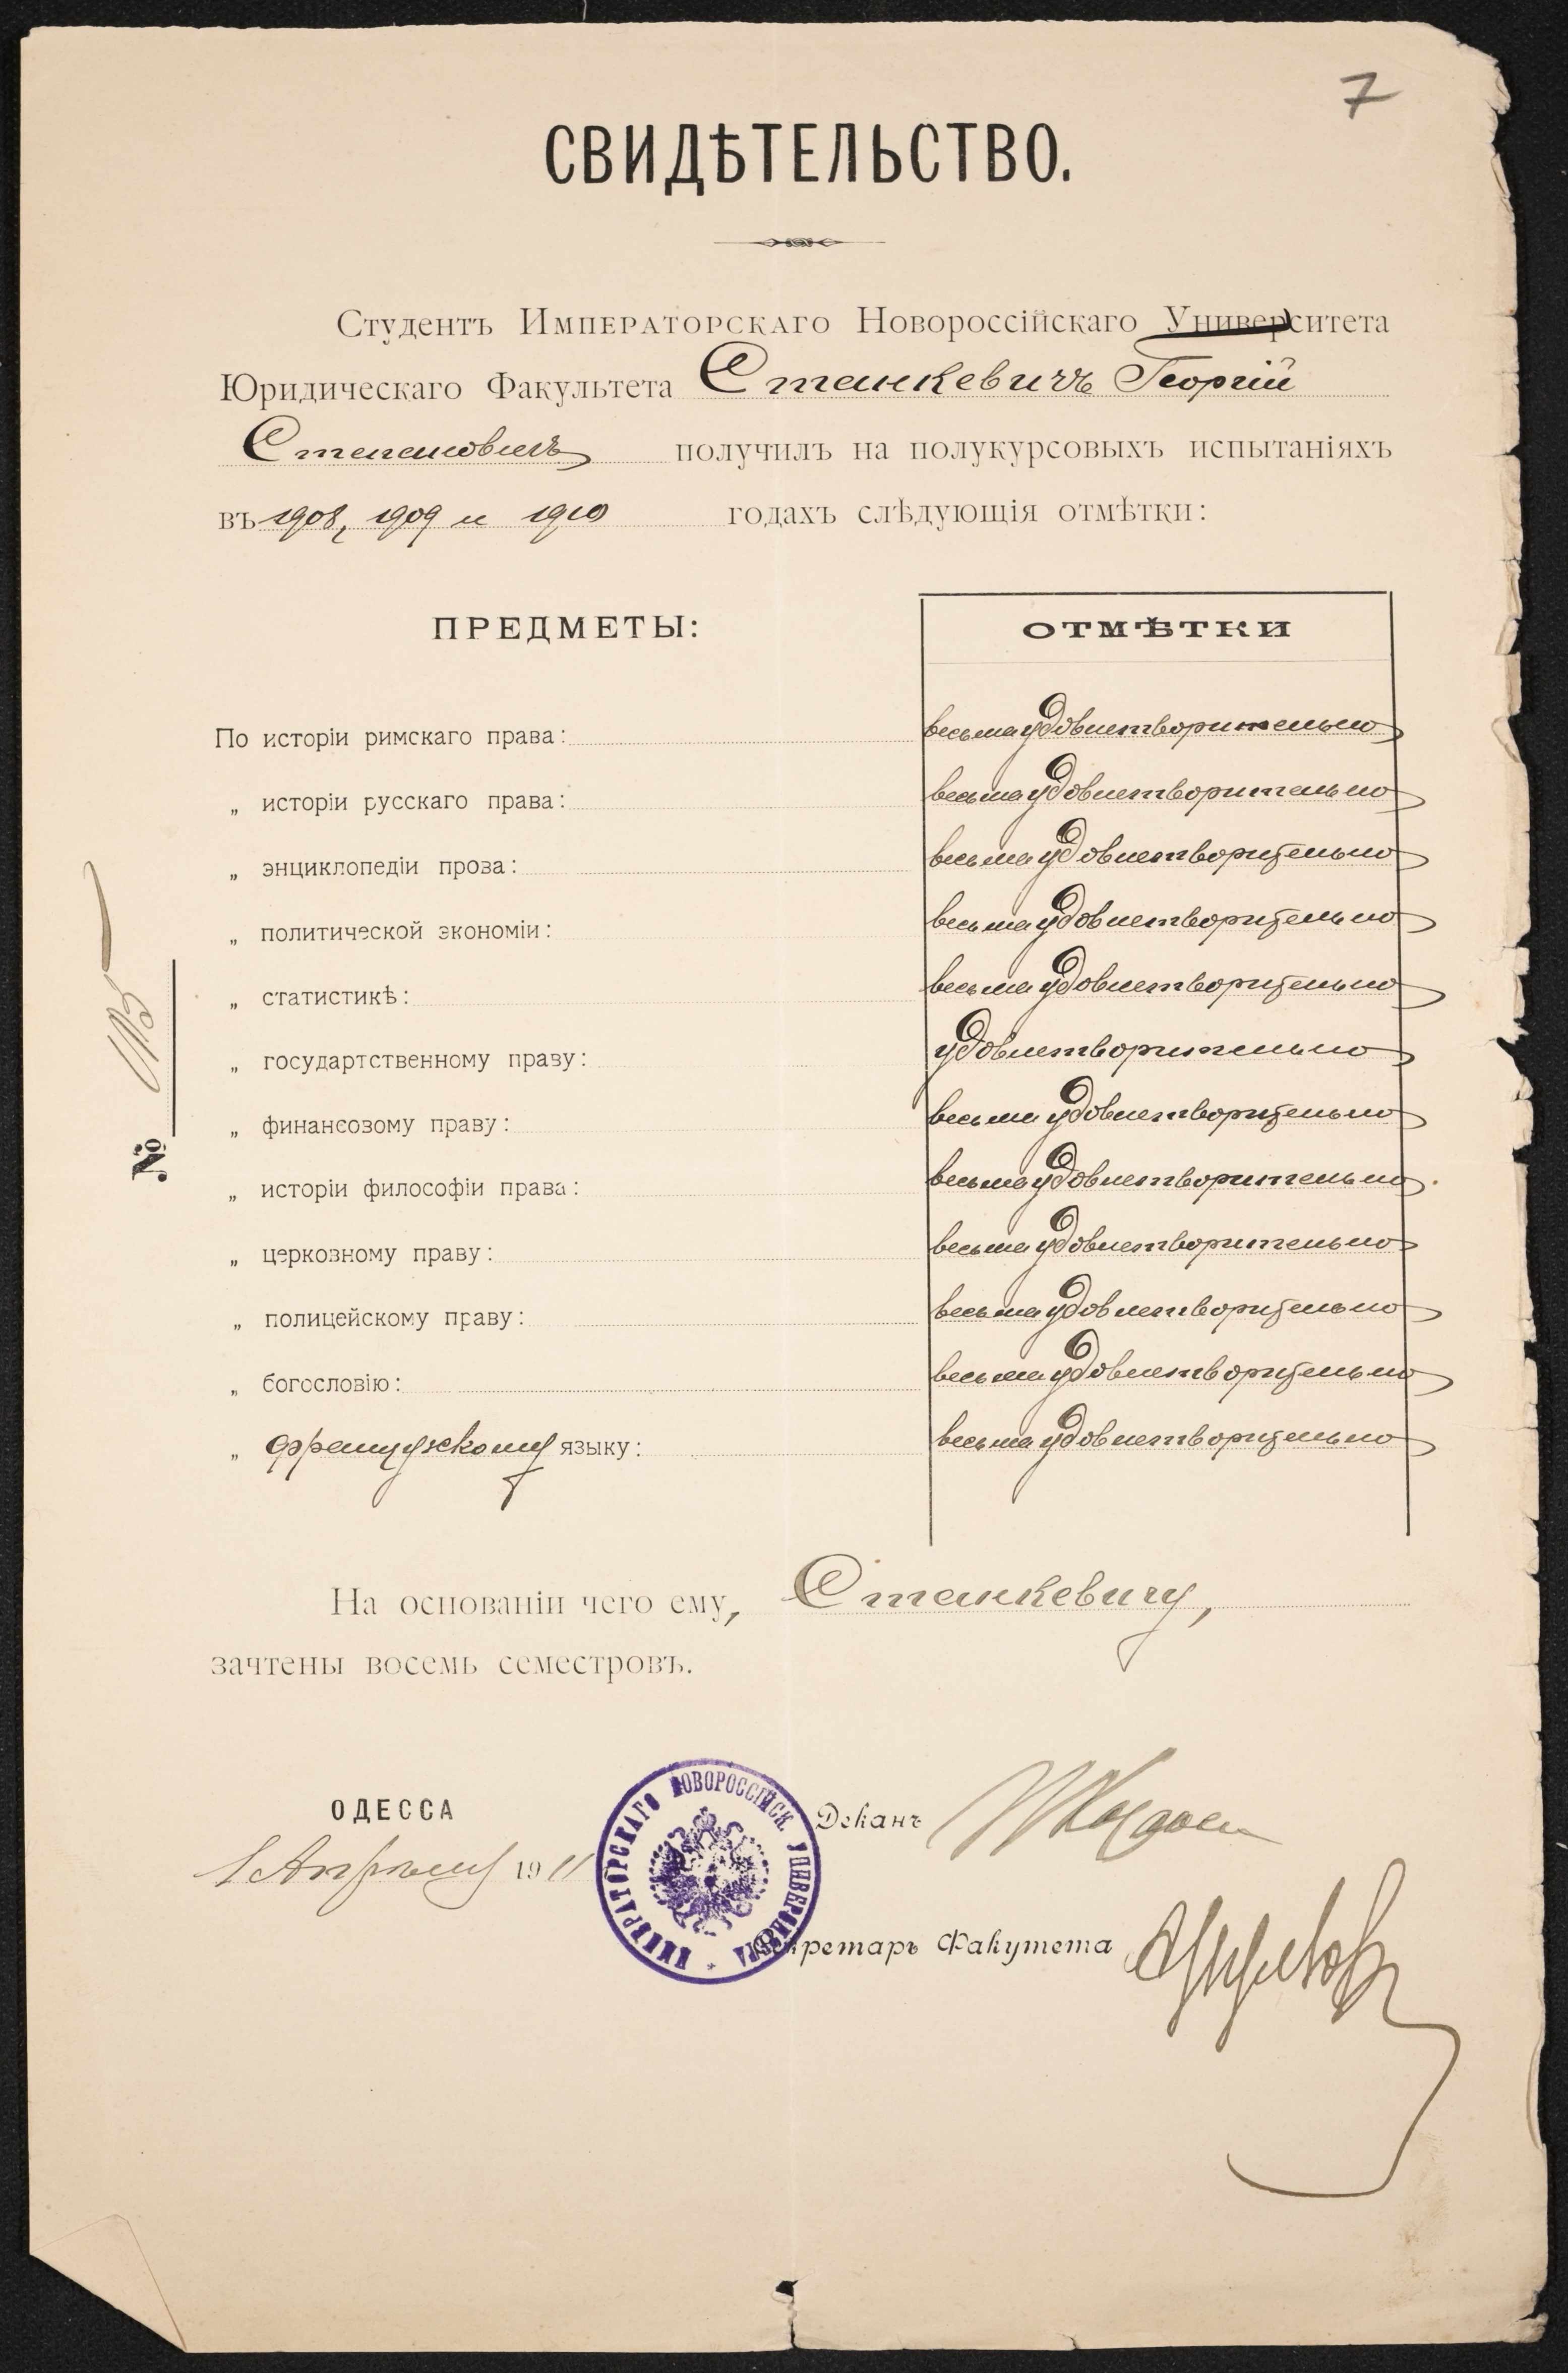 7
СВИДѢТЕЛЬСТВО.
Студентъ Императорскаго Новороссійскаго Университета
Юридическаго Факультета Станкевичъ Георгій
Степановичъ получилъ на полукурсовыхъ испытаніяхъ
въ 1908, 1909 и 1910 годахъ слѣдующія отмѣтки:
ПРЕДМЕТЫ: ОТМѢТКИ
По исторіи римскаго права: весьма удовлетворительно
„ исторіи русскаго права: весьма удовлетворительно
„ энциклопедіи проза: весьма удовлетворительно
„ политической экономіи: весьма удовлетворительно
„ статистикѣ: весьма удовлетворительно
„ государтственному праву: удовлетворительно
„ финансовому праву: весьма удовлетворительно
„ исторіи философіи права: весьма удовлетворительно
„ церковному праву: весьма удовлетворительно
„ полицейскому праву: весьма удовлетворительно
„ богословію: весьма удовлетворительно
„ французскому языку: весьма удовлетворительно
№
На основаніи чего ему, Станкевичу,
зачтены восемь семестровъ.
ОДЕССА
1 Апрѣля 1911
ИМПЕРАТОРСКАГО НОВОРОССІЙСК. УНИВЕРСИТЕТА
Деканъ
Секретарь Факутета